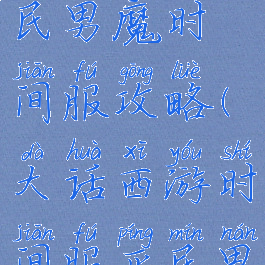 民男魔时
jiān fú gōng lüè
间服攻略(
dà huà xī yóu shí
大话西游时
jiān fú píng mín nán
间服平民男